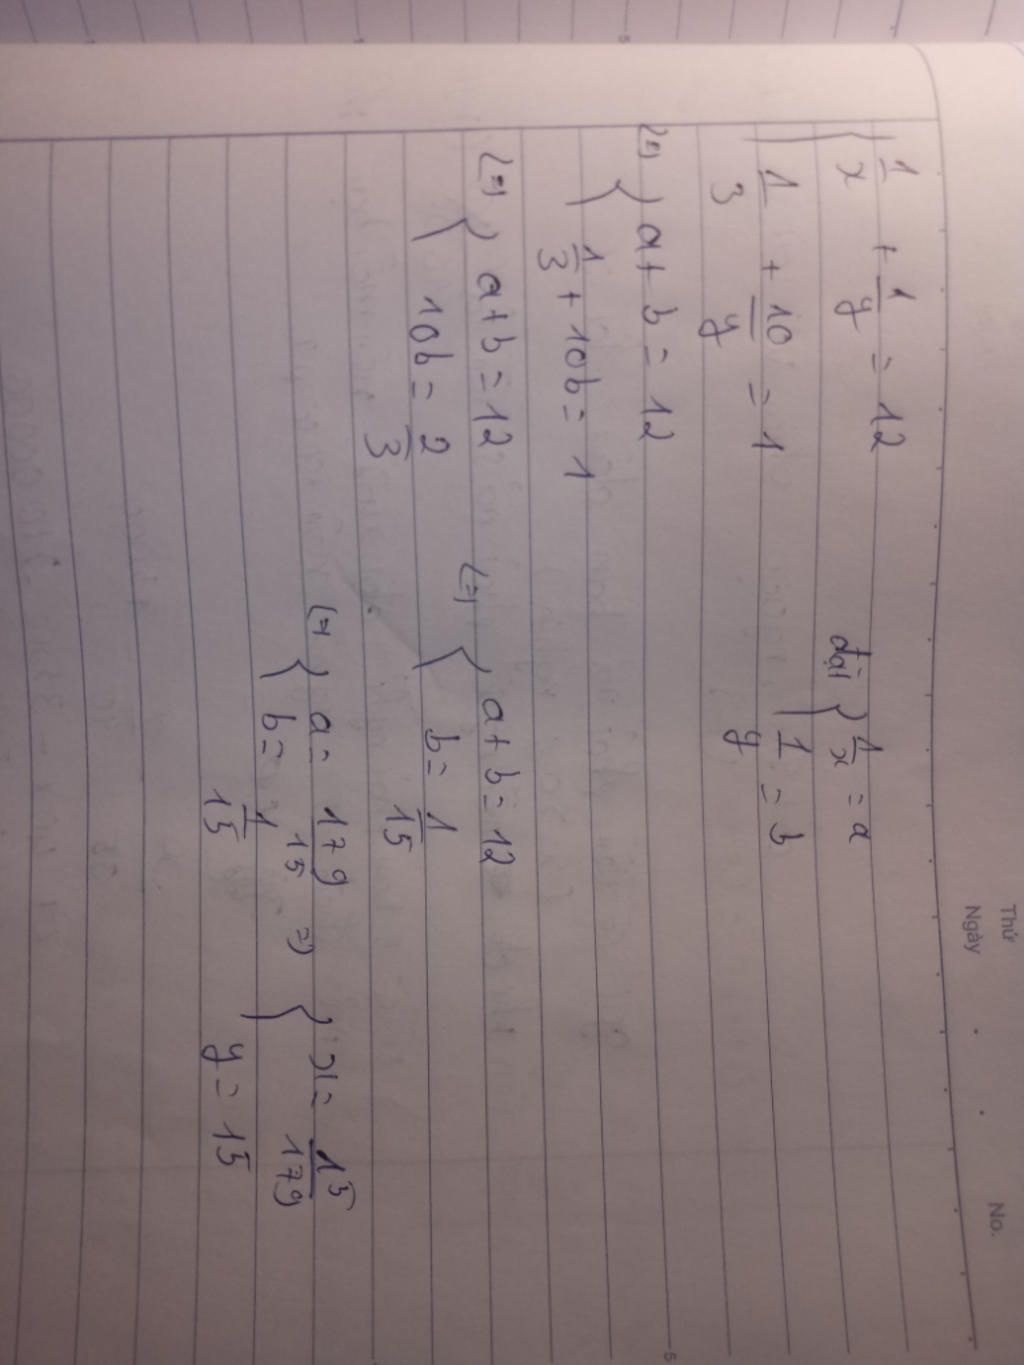 Thứ
Ngày
No.
{ 1/x + 1/y = 12
1/3 + 10/y = 1
đặt { 1/x = a
1/y = b
(=) { a + b = 12
1/3 + 10b = 1
(=) { a + b = 12
10b = 2/3
(=) { a + b = 12
b = 1/15
(=) { a = 179/15
b = 1/15
=) { x = 15/179
y = 15